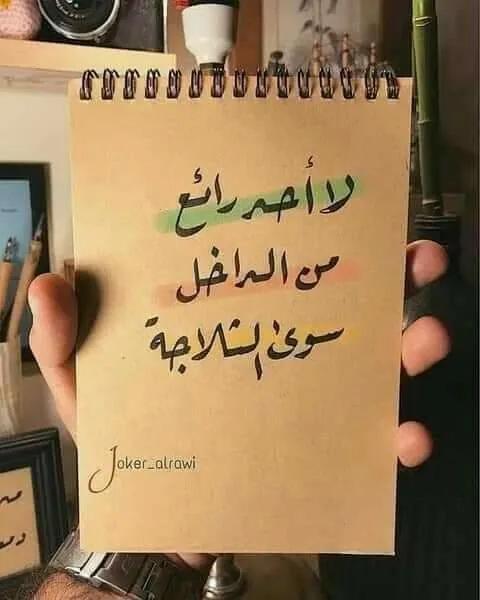 لا أحد رائع
من الداخل
سوى الثلاجة
Joker_alrawi